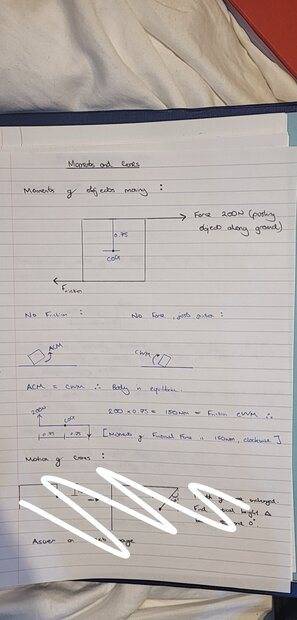 Moments and Cranes
Moments of objects moving :
Force 200N (pushing
object along ground)
0.75
COG
Friction
No Friction :
No Force, just friction :
ACM
CWM
ACM = CWM ∴ Body in equilibrium.
200N
COG
0.75
0.75
200 × 0.75 = 150Nm = Friction CWM ∴
[Moments of Frictional Force is 150Nm, clockwise]
Motion of Cranes :
unchanged.
Find
height
0°.